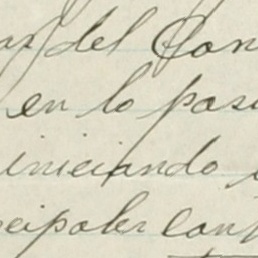 del Con
en lo pasi
iniciando
cipales conf